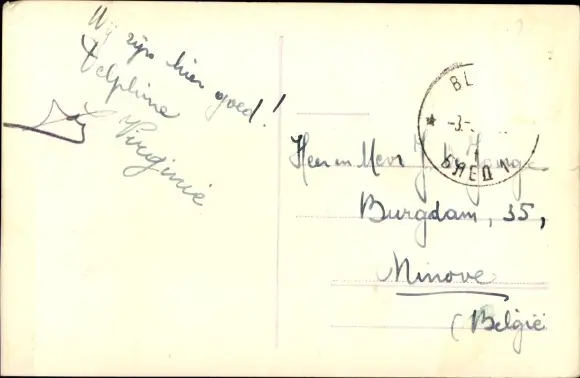 Wij zijn hier goed!
Delphine
Virginie
BL
-3.-
BREDIN
Heer en Mevr J.
Burgdam, 35,
Ninove
(België